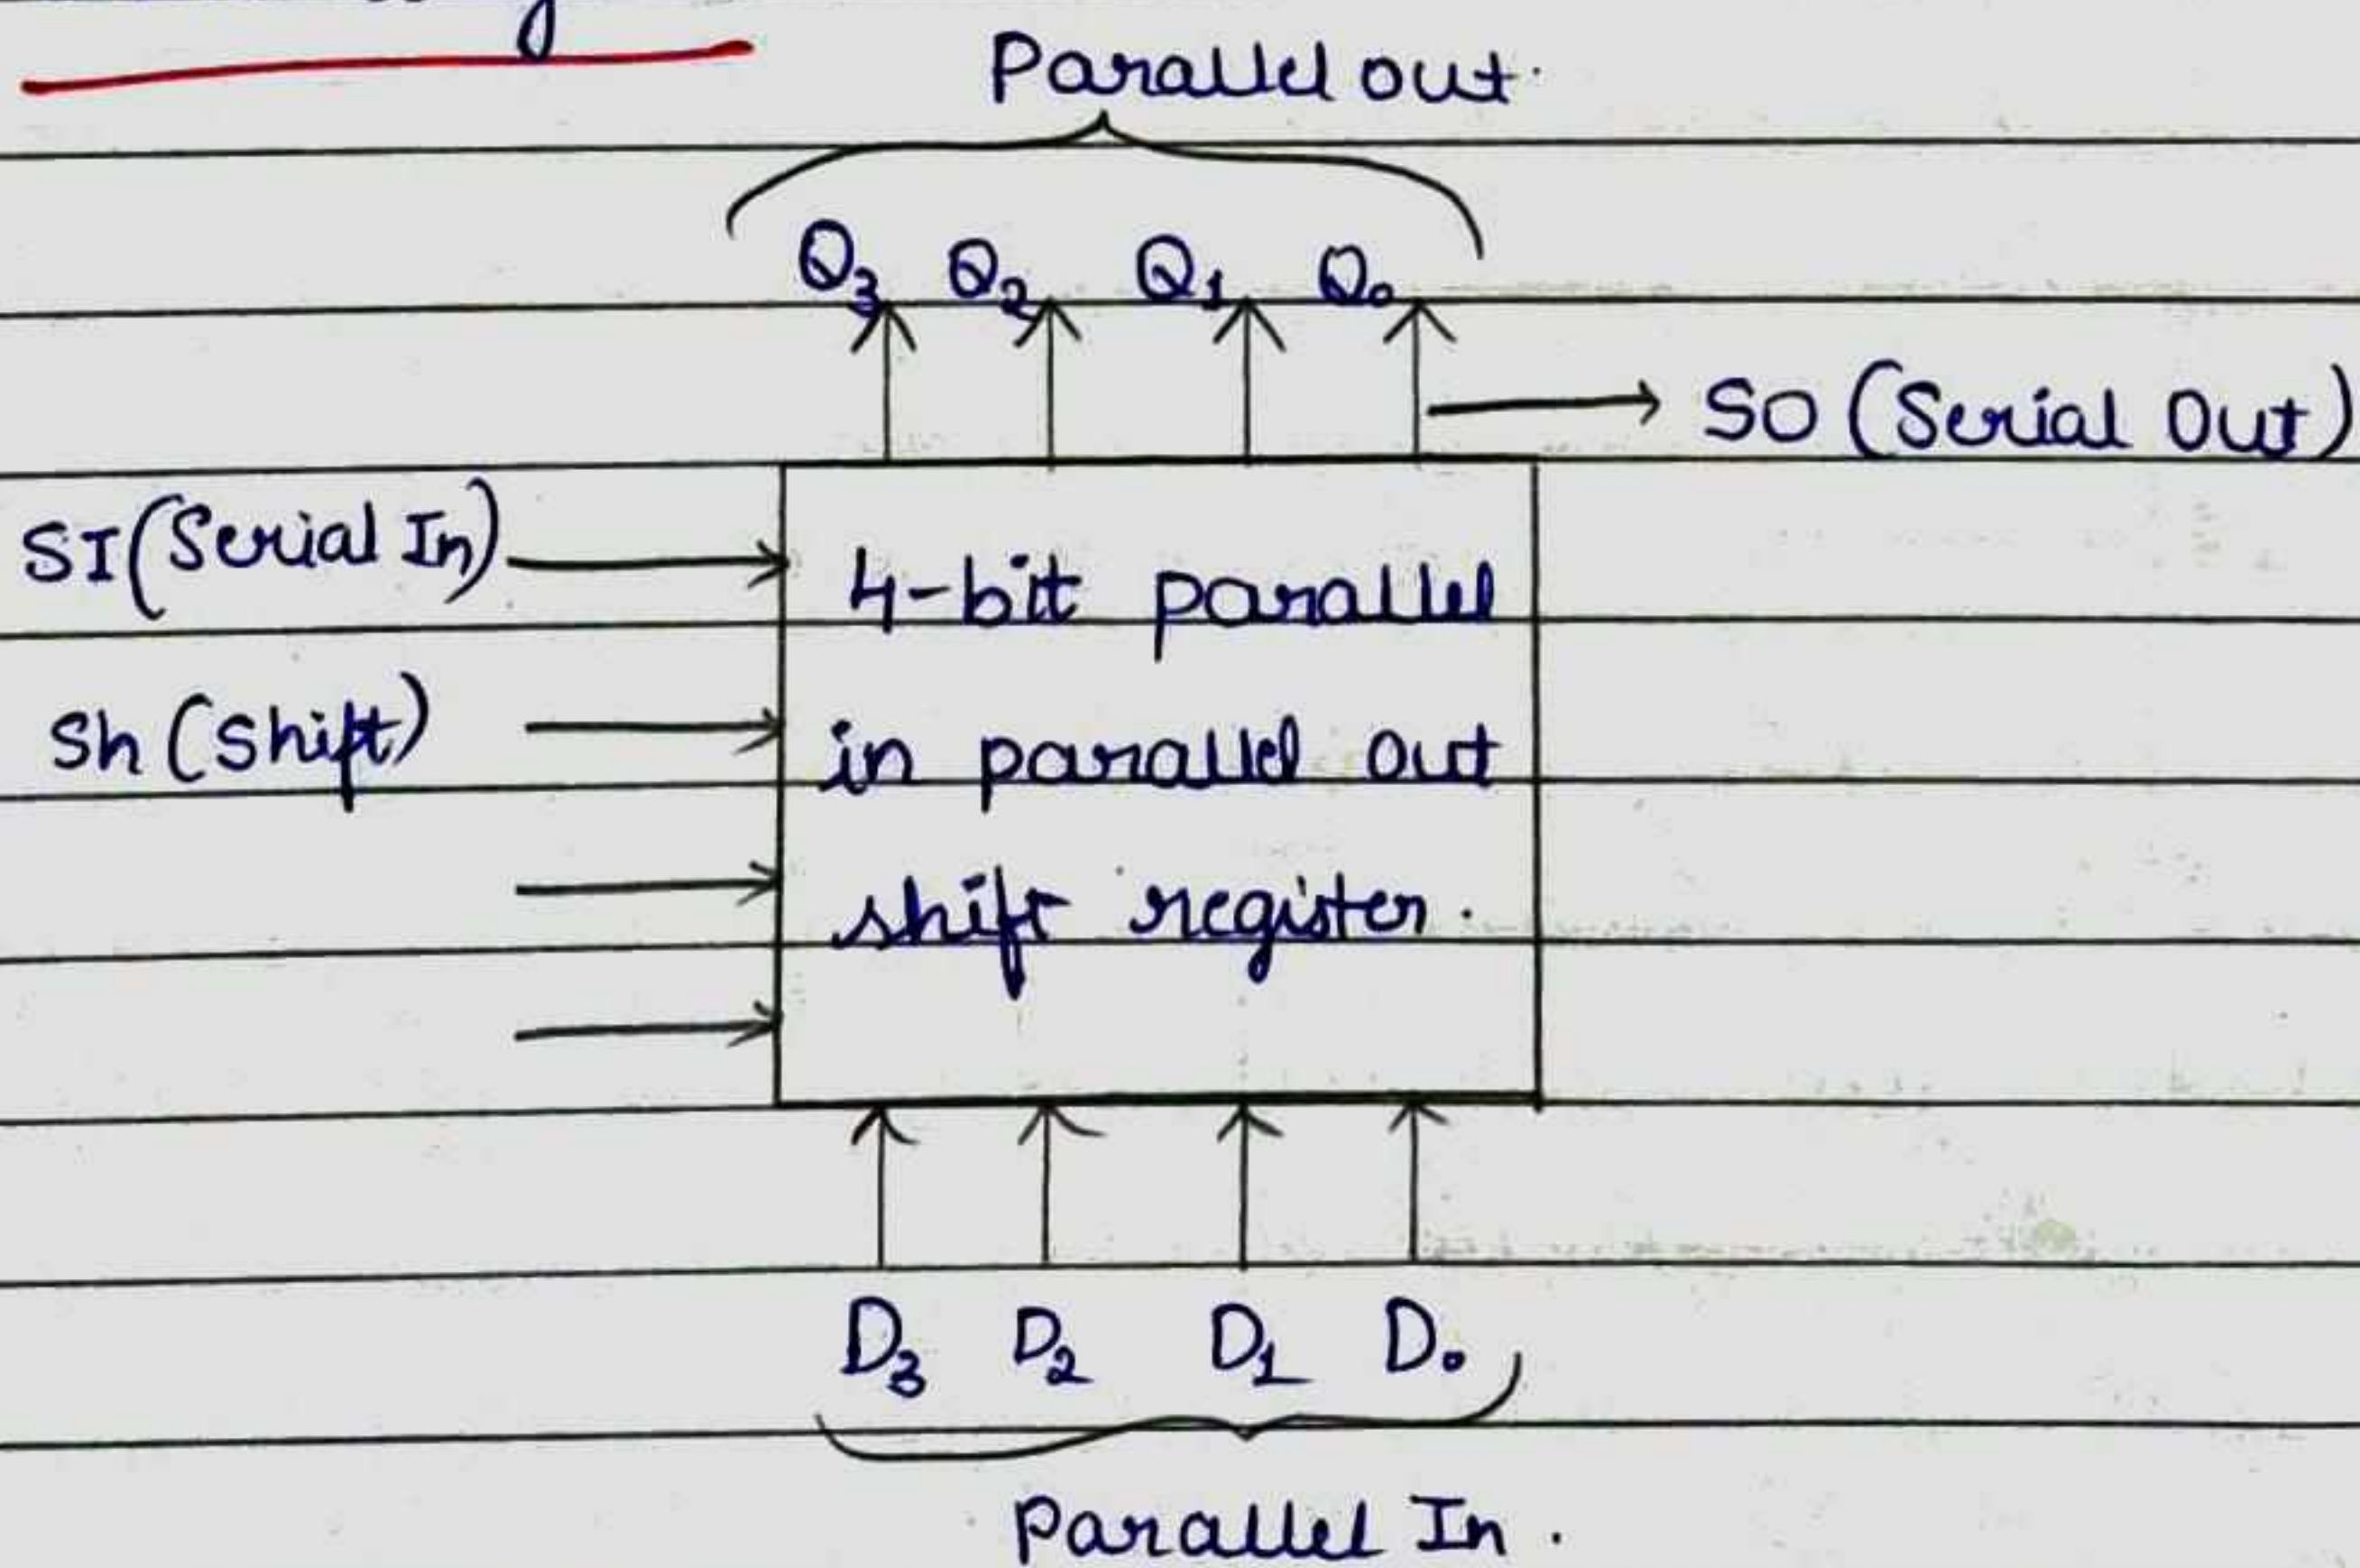 Parallel out.
Q3 Q2 Q1 Q0
SO (Serial Out)
SI (Serial In)
4-bit parallel
Sh (Shift)
in parallel out
shift register.
D3 D2 D1 D0
Parallel In.